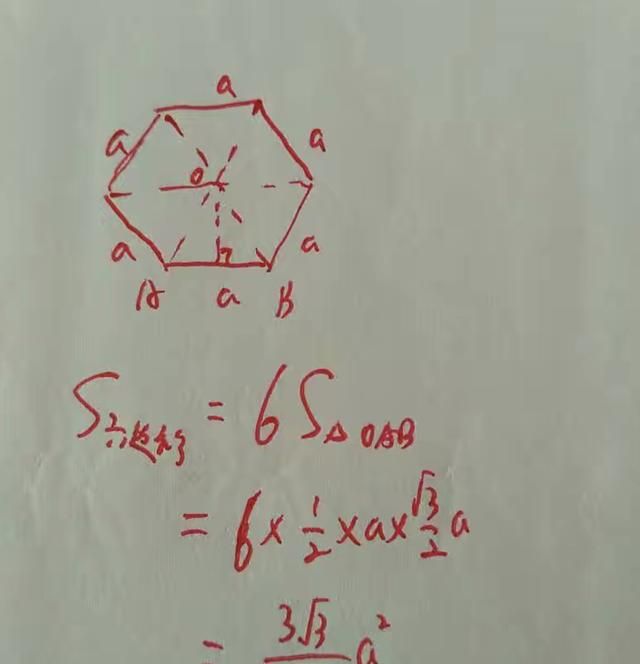 a
a
a
O
a
a
A a B
S六边形 = 6 S△OAB
= 6 × 1/2 × a × √3/2 a
= 3√3/ a²